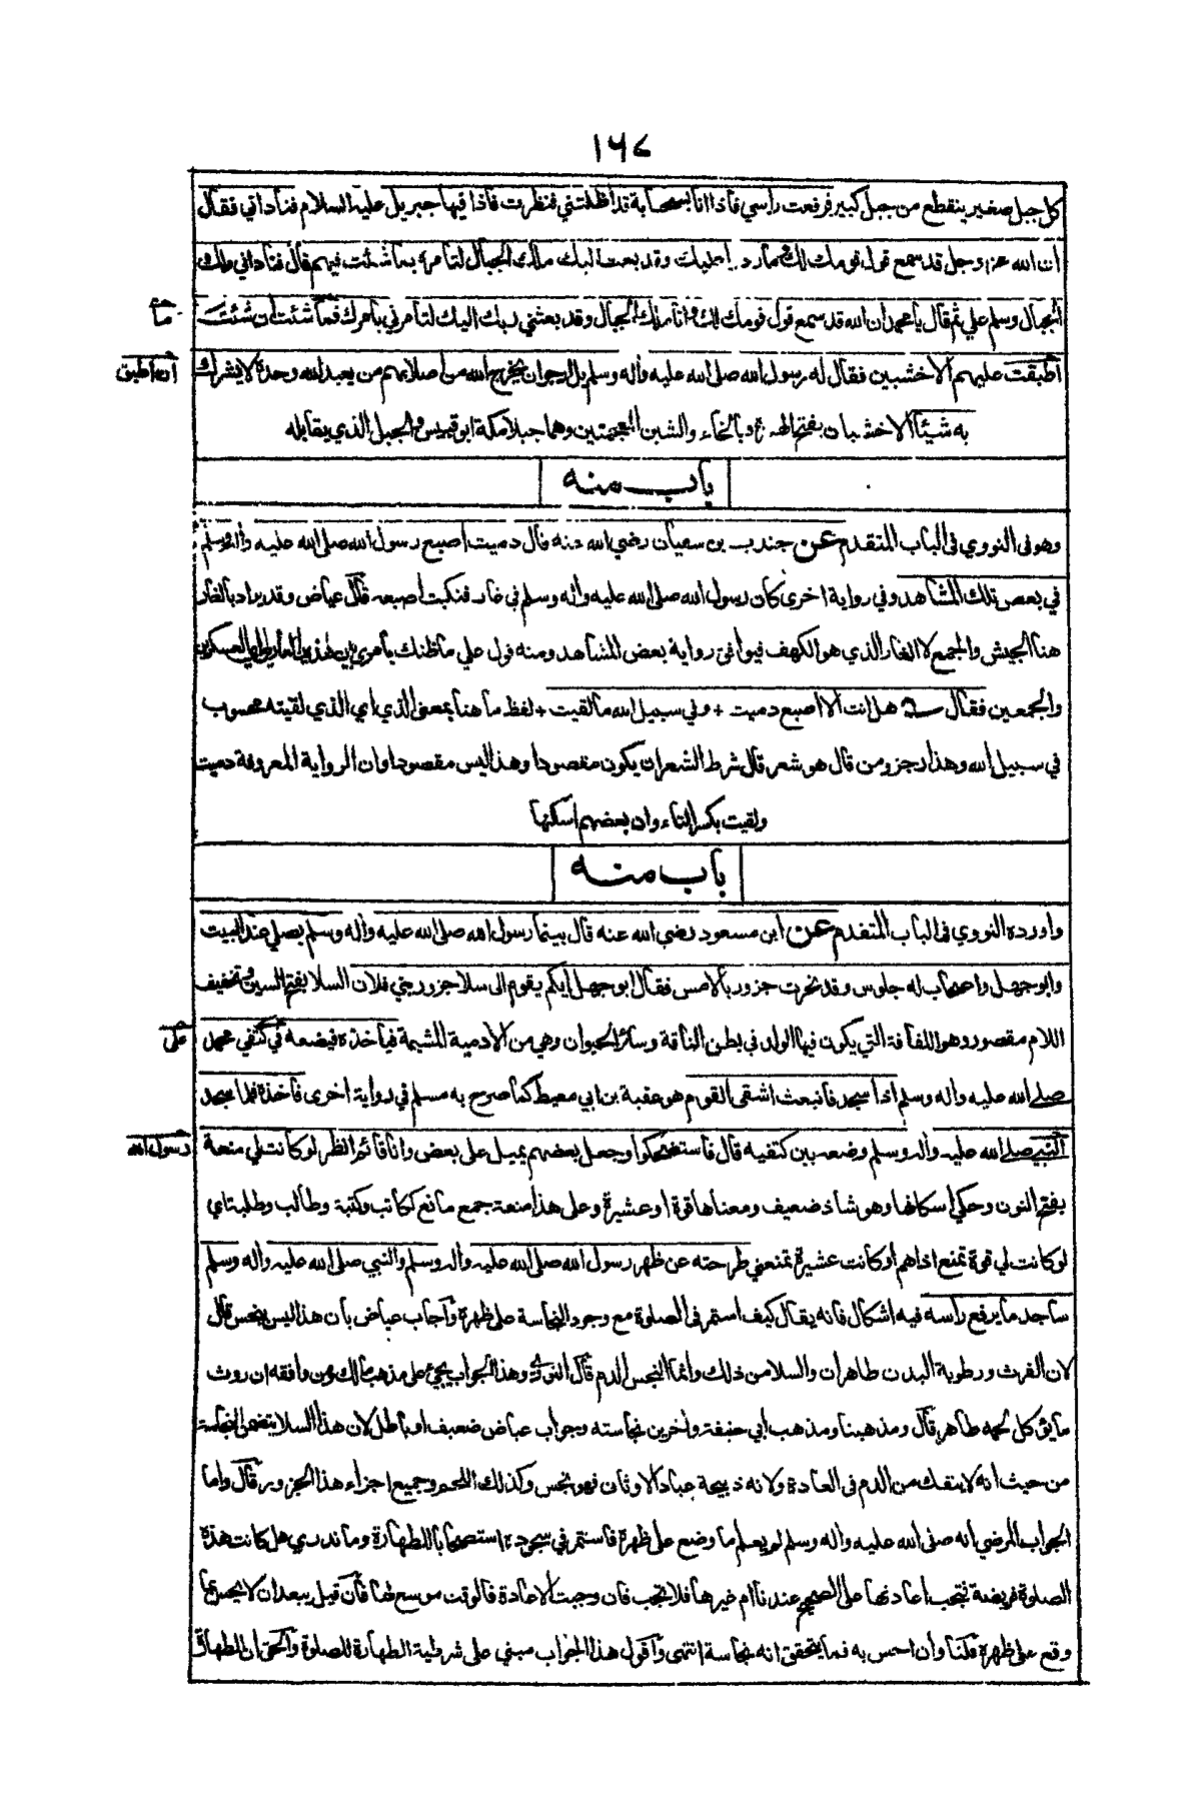 ١٦٧
كل جبل صغير ينقطع من جبل كبير فرفعت راسي فاذا انا بسحابة قد اظلتني فنظرت فاذا فيها جبريل عليه السلام فناداني فقال
ان الله عز وجل قد سمع قول قومك لك وما رد وا عليك وقد بعث اليك ملك الجبال لتأمره بما شئت فيهم قال فناداني ملك
الجبال وسلم علي ثم قال يا محمد ان الله قد سمع قول قومك لك وانا ملك الجبال وقد بعثني ربك اليك لتأمرني بامرك فما شئت ان شئت
ما
اطبقت عليهم الاخشبين فقال له رسول الله صلى الله عليه واله وسلم بل ارجو ان يخرج الله من اصلابهم من يعبد الله وحده لا يشرك
ان اطبق
به شيئا الاخشبان بفتح الهمزة وبالخاء والشين المعجمتين وهما جبلا مكة ابو قبيس والجبل الذي يقابله
باب منه
وهو في النووي في الباب المتقدم عن جندب بن سفيان رضي الله عنه قال دميت اصبع رسول الله صلى الله عليه واله وسلم
في بعض تلك المشاهد وفي رواية اخرى كان رسول الله صلى الله عليه واله وسلم في غار فنكبت اصبعه قال عياض وقد يراد بالغار
هنا الجيش والجمع لا الغار الذي هو الكهف فيوافق رواية بعض المشاهد ومنه قول علي ما ظنك بامرئ بين هذين الغارين اي العسكرين
والجمعين فقال هل انت الا اصبع دميت + وفي سبيل الله ما لقيت + لفظ ما هنا بمعنى الذي اي الذي لقيته محسوب
في سبيل الله وهذا رجز ومن قال هو شعر قال شرط الشعر ان يكون مقصودا وهذا ليس مقصودا وان الرواية المعروفة دميت
ولقيت بكسر التاء وان بعضهم اسكنها
باب منه
واورده النووي في الباب المتقدم عن ابن مسعود رضي الله عنه قال بينما رسول الله صلى الله عليه واله وسلم يصلي عند البيت
وابو جهل واصحاب له جلوس وقد نحرت جزور بالامس فقال ابو جهل ايكم يقوم الى سلا جزور بني فلان السلا بفتح السين وتخفيف
اللام مقصور وهو اللفافة التي يكون فيها الولد في بطن الناقة وسائر الحيوان وهي من الادمية المشيمة فياخذه فيضعه في كتفي محمد
على
صلى الله عليه واله وسلم اذا سجد فانبعث اشقى القوم هو عقبة بن ابي معيط كما صرح به مسلم في رواية اخرى فاخذه فلما سجد
النبي صلى الله عليه واله وسلم وضعه بين كتفيه قال فاستضحكوا وجعل بعضهم يميل على بعض وانا قائم انظر لو كانت لي منعة
رسول الله
بفتح النون وحكي اسكانها وهو شاذ ضعيف ومعناها قوة او عشيرة وعلى هذا منعة جمع مانع ككاتب وكتبة وطالب وطلبة اي
لو كانت لي قوة تمنع اذاهم او كانت عشيرة تمنعني طرحته عن ظهر رسول الله صلى الله عليه واله وسلم والنبي صلى الله عليه واله وسلم
ساجد ما يرفع راسه فيه اشكال فانه يقال كيف استمر في الصلوة مع وجود النجاسة على ظهره واجاب عياض بان هذا ليس بنجس قال
لان الفرث ورطوبة البدن طاهران والسلا من ذلك وانما النجس الدم قال النووي وهذا الجواب يجيئ على مذهب مالك ومن وافقه ان روث
ما يؤكل لحمه طاهر قال ومذهبنا ومذهب ابي حنيفة واخرين نجاسته وجواب عياض ضعيف او باطل لان هذا السلا يتضمن النجاسة
من حيث انه لا ينفك من الدم في العادة ولانه ذبيحة عباد الاوثان فهو نجس وكذلك اللحم وجميع اجزاء هذا الجزور قال واما
الجواب المرضي انه صلى الله عليه واله وسلم لم يعلم ما وضع على ظهره فاستمر في سجوده استصحابا للطهارة وما ندري هل كانت هذه
الصلوة فريضة فتجب اعادتها على الصحيح عندنا ام غيرها فلا تجب فان وجبت الاعادة فالوقت موسع لها فان قيل يبعد ان لا يحس بما
وقع على ظهره قلنا وان احس به فما يتحقق انه نجاسة انتهى واقول هذا الجواب مبني على شرطية الطهارة للصلوة والحق ان الطهارة